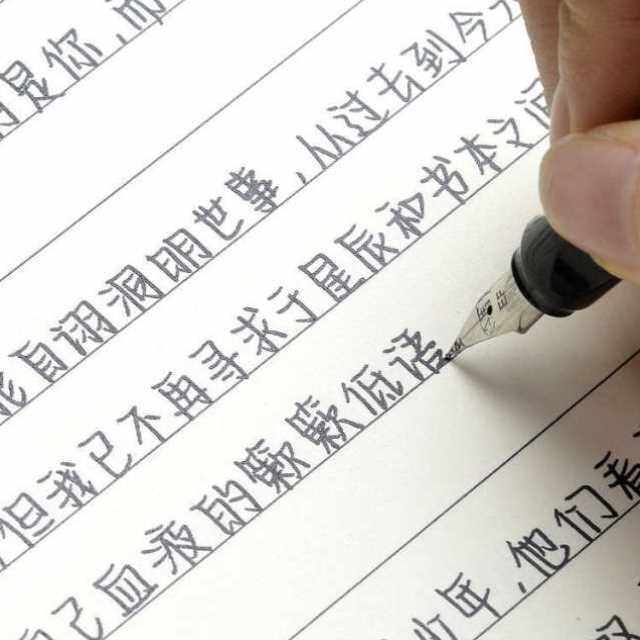 是你，
能自诩洞明世事，从过去到今
但我已不再寻求于星辰和书本之间
己血液的簌簌低语
年，他们看